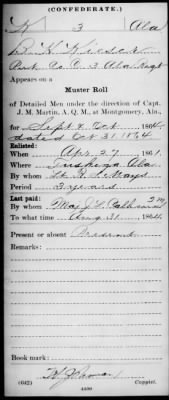 (CONFEDERATE.)
3 Ala
Appears on a
Muster Roll
of Detailed Men under the direction of Capt.
J. M. Martin, A. Q. M., at Montgomery, Ala.,
for Sept & Oct, 1864.
dated Oct 31 1864
Enlisted:
When Apr 27, 1861.
Where Tuskegee Ala
By whom Lt R. L. Mays
Period 3 years
Last paid:
By whom Maj J. L. Calhoun
To what time Aug 31, 1864.
Present or absent Present
Remarks:
Book mark:
(642)
Copyist.